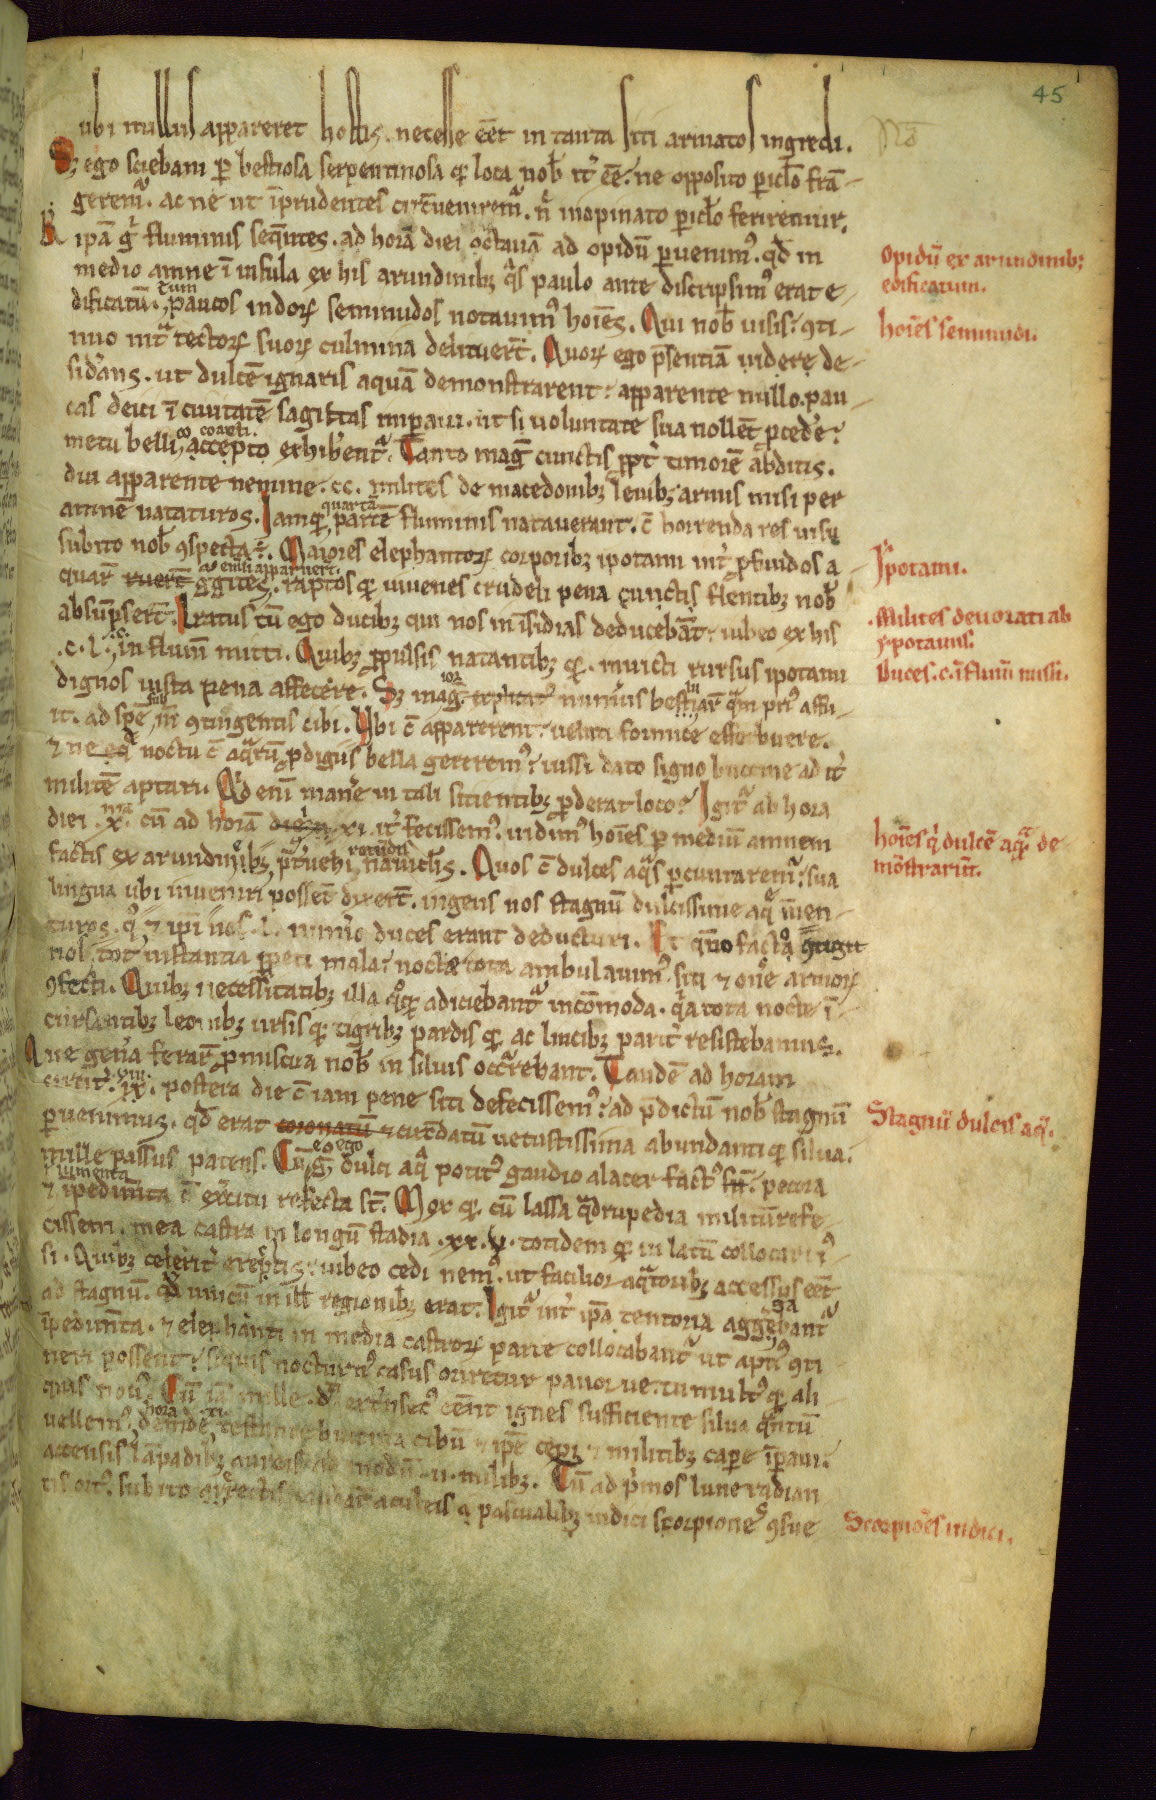 45
ubi nullus appareret hostis. necesse eēt in tanta siti armatos ingredi.
Sꝫ ego sciebam ꝑ bestiosa serpentinosa qꝫ loca nob̄ it̉ ēe. ne opposito ꝑiclo frā-
gerem᷑. ac ne ut īprudentes circūuenirem᷑. ul̉ inopinato ꝑiclo feriremur.
Ripā gͥ fluminis seqūtes. ad horā diei octauā ad opidū ꝑuenimꝰ. qd̄ in
medio amne ī insula ex his arundinibꝫ qͣs paulo ante discripsimꝰ erat e-
dificatū. tum paucos indoꝝ seminudos notauimꝰ hoīes. Qui nob̄ uisis: ꝯti-
nuo int᷑ tectoꝝ suoꝝ culmina delituert̄. Quoꝝ ego p̄sentiā uidere de-
sid̉ans. ut dulcē ignaris aquā demonstrarent: apparente nullo. pau-
cas deici ī ciuitatē sagittas imꝑaui. ut si uoluntate sua nollēt ꝓced̉e:
metu belli coacti. accepto exhiber̄ent᷑. Tanto mag̅ cunctis ꝓpt̉ timorē abditis.
diu apparente nemine. cc. milites de macedonibꝫ leuibꝫ armis misi per
amnē nataturos. Iamqꝫ quartā partē fluminis natauerant. c̄ horrenda res uisu
subito nob̄ ꝯspecta ÷. Maiores elephantoꝝ corporibꝫ ipotami int̉ ꝓfundos a-
quaꝝ ruert̄ emsi apparuert̄. ggites. raptos qꝫ iuuenes crudeli pena cunctis flentibꝫ nob̄
absūpsert̄. Iratus tū ego ducibꝫ qui nos in īsidias deducebāt. iubeo ex his
.c.l. in flum̄ mitti. Quibꝫ ꝓpulsis natantibꝫ qꝫ. inuicti rursus ipotami
dignos iusta pena affecere. Sꝫ mag̅ ior replicat᷑ num̉us
it. ad spē sub m̄ ꝯtingentis cibi. Ubi c̄ apparerent: ueluti formice efferbuere.
⁊ ne noctu c̄ aqͣꝝ ꝓdigiis bella gererem᷑: iussi dato signo buccine ad it̉
militē aptari. Qͥd enī man̉e in tali sitientibꝫ ꝓderat loco? Igit᷑ ab hora
diei .x. cū ad horā xi. it̉ fecissemꝰ. uidimꝰ hoīes ꝑ mediū amnem
factis ex arundinibꝫ p̄teruehi rotūdis nauiclis. Quos c̄ dulces aqͣs ꝑcunctarem᷑: sua
lingua ubi inueniri possēt dixert̄. ingens nos stagnū dulcissime aq̄ īuen-
turos. qͦ ⁊ ipi nos .l. num̉o duces erant deducturi. Et
nol tot instantia ꝑpeti mala? nocte tota ambulauimꝰ. siti ⁊ on̉e armoꝝ
ꝯfecti. Quibꝫ necessitatibꝫ illa qͦqꝫ adiciebant᷑ incōmoda. qͥa tota nocte ī-
cursantibꝫ leonibꝫ ursis qꝫ tigribꝫ pardis qꝫ. ac lincibꝫ parit̉ resistebamus.
Que gen̉a feraꝝ ꝓmiscua nob̄ in siluis occͬrebant. Tandē ad horam
uiii. postera die c̄ iam pene siti defecissemꝰ: ad p̄dictū nob̄ stagnū
ꝑuenimus. qd̄ erat coronatū circūdatū uetustissima abundanti qꝫ silua.
mille passus patens. Cū eo ego dulci aqͣ potitꝰ gaudio alacer factꝰ sū. pecora
⁊ iumenta īpedim̄ta c̄ ex̉citu refecta st̄. Mox qꝫ. cū lassa qͣdrupedia militū refe-
cissem. mea castra in longū stadia .xx.ij. totidem qꝫ in latū collocari iꝰ-
si. Quibꝫ celerit̉ erectis. iubeo cedi nemꝰ. ut facilior aqͣtoribꝫ accessus eēt
ad stagnū. qd̄ unicū in ill̄ regionibꝫ erat. Igit᷑ int̉ ipa tentoria aggrebant᷑ ga
īpedim̄ta. ⁊ elephanti in media castroꝝ parte collocabant᷑ ut aptiꝰ ꝯti
neri possent: siquis nocturnꝰ casus oriretur pauor ue. tumultꝰ qꝫ ali
quis notꝰ. Cū iā mille. dͦ. extͥnsecꝰ eēnt ignes sufficiente silua qͣntū
uellemꝰ. deinde hora .xi. buccina cibū ⁊ ipe cepi. ⁊ militibꝫ caꝑe īꝑaui.
accensis lāpadibꝫ aureis ad modū .ii. milibꝫ. Cū ad pͥmos lune radian
tis ort᷑. subito aculeis pascualibꝫ indici scorpiones ꝯsue
Opidū ex arundinibꝫ
edificatum.
hoīes seminudi.
Ipotami.
Milites deuorati ab
ypotamis.
Duces .c. ī flum̄ missi.
hoīes qͥ dulcē aqͣꝫ de-
mōstrarūt.
Stagnū dulcis aq̄.
Scorpiones indici.